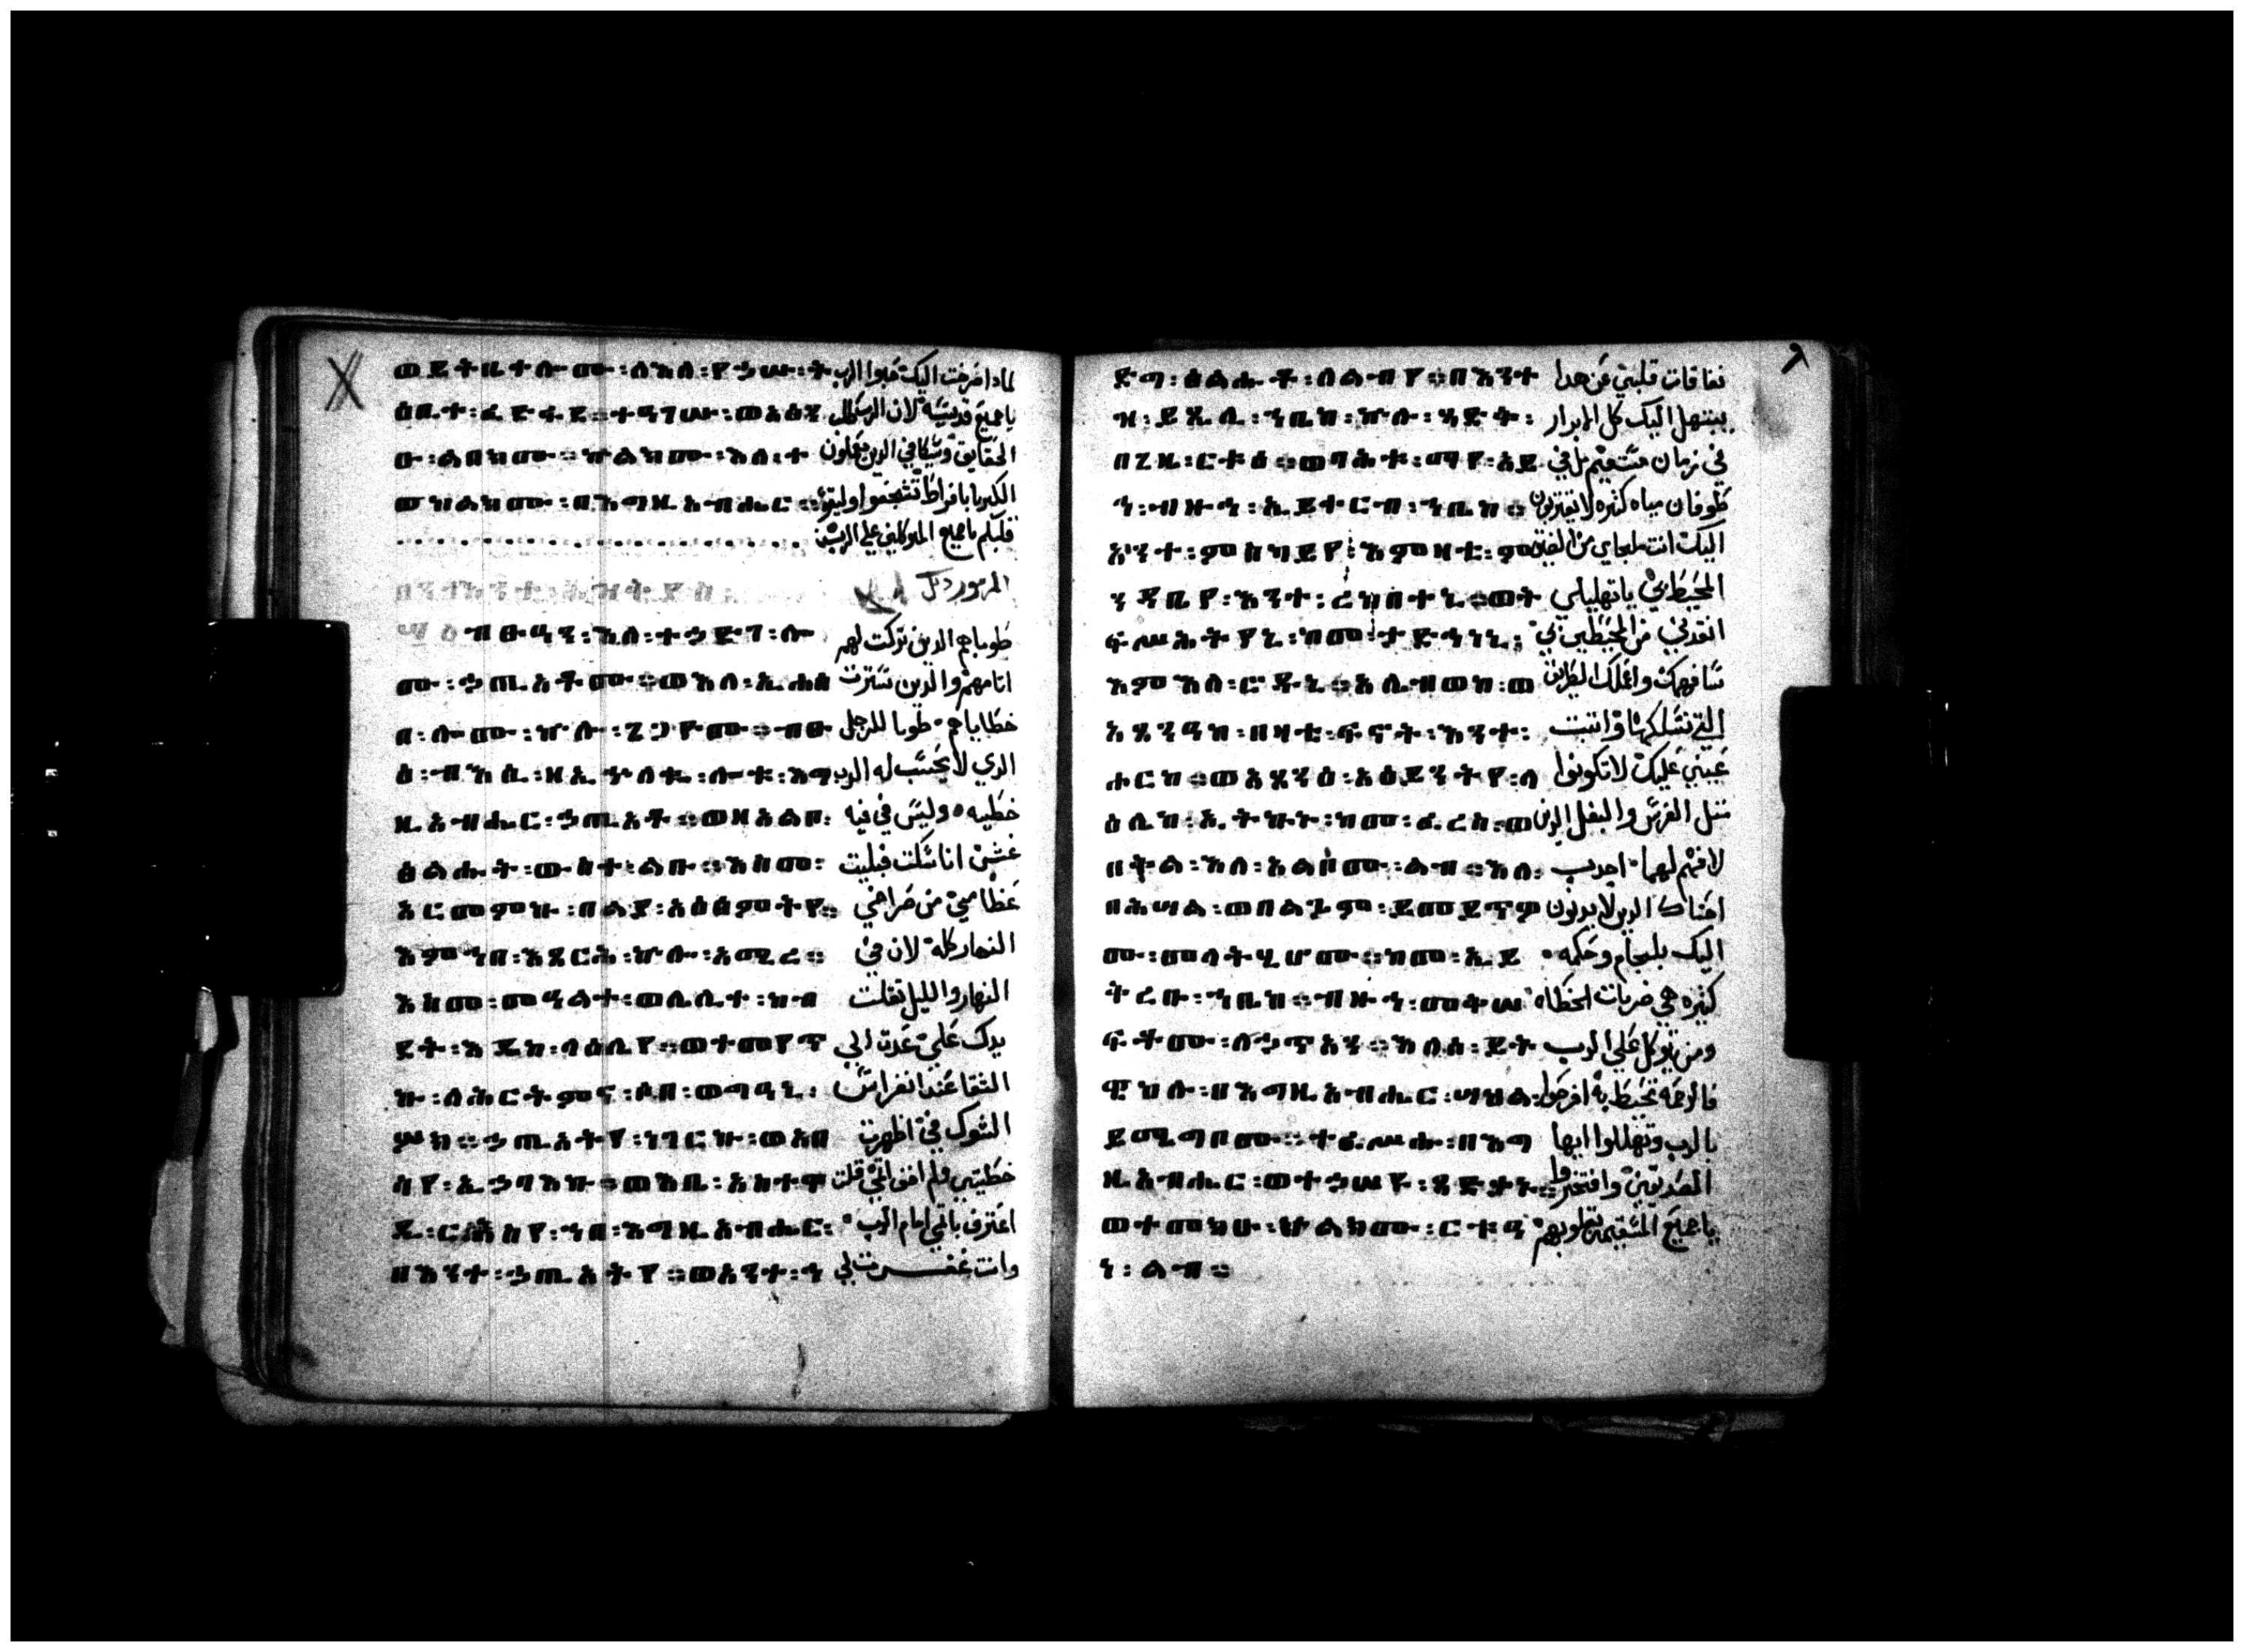 ወይትቤቀሎሙ፡ለእለ፡የኀሥሡ፡ት لمادا فرخت اليك فبوا الرب
ዕቢተ፡ፈድፋደ። ተዓገሡ፡ወአጽን يا جميع قديسيه لان الرب
ዑ፡ልበክሙ። ኵልክሙ፡እለ፡ተ الحقايق ويكافي الدين يعملون
ወከልክሙ፡በእግዚአብሔር። الكبريا بافراط تشجعوا وليقو
قلبكم يا جميع المتوكلين علي الرب
المزمور لا
ብፁዓን፡እለ፡ተኀድገ፡ሎ طوباهم الدين تركت لهم
ሙ፡ኀጢአቶሙ። ወእለ፡ኢሐሰ اتامهم والدين سترت
በ፡ሎሙ፡ኵሎ፡ጌጋዮሙ። ብፁ خطاياهم طوبا للرجل
ዕ፡ብእሲ፡ዘኢኈለቈ፡ሎቱ፡እግ الدي لا يحسب له الرب
ዚአብሔር፡ኀጢአቶ። ወዘአልቦ፡ خطيه وليس في فيه
ጽልሑት፡ውስተ፡ልቡ። እስመ፡ غش انا سكت فبليت
አርመምኩ፡በልየ፡አዕፅምትየ። عظامي من صراخي
እምኀበ፡እጸርሕ፡ኵሎ፡አሚረ። النهار كله لان في
እስመ፡መዓልተ፡ወሌሊተ፡ከብ النهار والليل تقلت
ደት፡እዴከ፡ላዕሌየ። ወተመየጥ يدك علي عدت الي
ኩ፡ለሕርትምና፡ሶበ፡ወግዓኒ፡ الشقا عند انغراس
ሦክ። ኀጢአትየ፡ነገርኩ፡ወአበ الشوك في اظهرت
ሳየ፡ኢኀባእኩ። ወእቤ፡እትዋ خطيتي ولم اخف اتمي قلت
ደይ፡ርእስየ፡ኀበ፡እግዚአብሔር፡ اعترف باتمي امام الرب
በእንተ፡ኀጢአትየ። ወአንተ፡ኅ وانت غفرت لي
ድግ፡ዕልሖት፡ለልብየ። በእንተ نفاقات قلبي عن هدا
ዝ፡ይጼሊ፡ኀቤከ፡ኵሉ፡ጻድቅ፡ يبتهل اليك كل الابرار
በጊዜ፡ርቱዕ። ወባሕቱ፡ማየ፡አይ في زمان مستقيم بل في
ኅ፡ብዙኅ፡ኢይቀርብ፡ኀቤከ። طوفان مياه كتيره لا يقتربون
አንተ፡ምስካይየ፡እምዛቲ፡ምን اليك انت ملجاي من الضيقه
ዳቤየ፡አንተ፡ወት المحيطه بي يا تهليلي
ፍሥሕትየኒ፡ከመ፡ታድኅነኒ፡ انقدني من المحيطين بي
እምእለ፡ዖዱኒ። አሌብወከ፡ወ سافهمك واعلمك الطريق
አጸንዓከ፡በዛቲ፡ፍኖት፡እንተ፡ التي تسلكها واتبت
ሖርከ። ወአጸንዕ፡አዕይንትየ፡ላ عيني عليك لا تكونوا
ዕሌከ፡ኢትኩኑ፡ከመ፡ፈረስ፡ወ متل الفرس والبغل الدين
በቅል፡እለ፡አልቦሙ፡ልበ። እለ፡ لا فهم لهما اجدب
በሕሳል፡ወበልጓም፡ይመይጥዎ احناك الدين لا يدنون
ሙ፡መላትሒሆሙ። ከመ፡ኢይ اليك بلجام وحكمه
ቅረቡ፡ኀቤከ። ብዙኅ፡መቅሠ كتيره هي ضربات الخطاه
ፍቶሙ፡ለኃጥአን። እለሰ፡ይት ومن يتوكل علي الرب
ዌከሉ፡በእግዚአብሔር፡ሣህል፡ فالرحمه تحيط به افرحوا
ይሜግቦሙ። ተፈሥሑ፡በእግ بالرب وتهللوا ايها
ዚአብሔር፡ወተኀሠዩ፡ጻድቃን። الصديقين وافتخروا
ወተመክሑ፡ኵልክሙ፡ርቱዓ يا جميع المستقيمه قلوبهم
ነ፡ልብ።